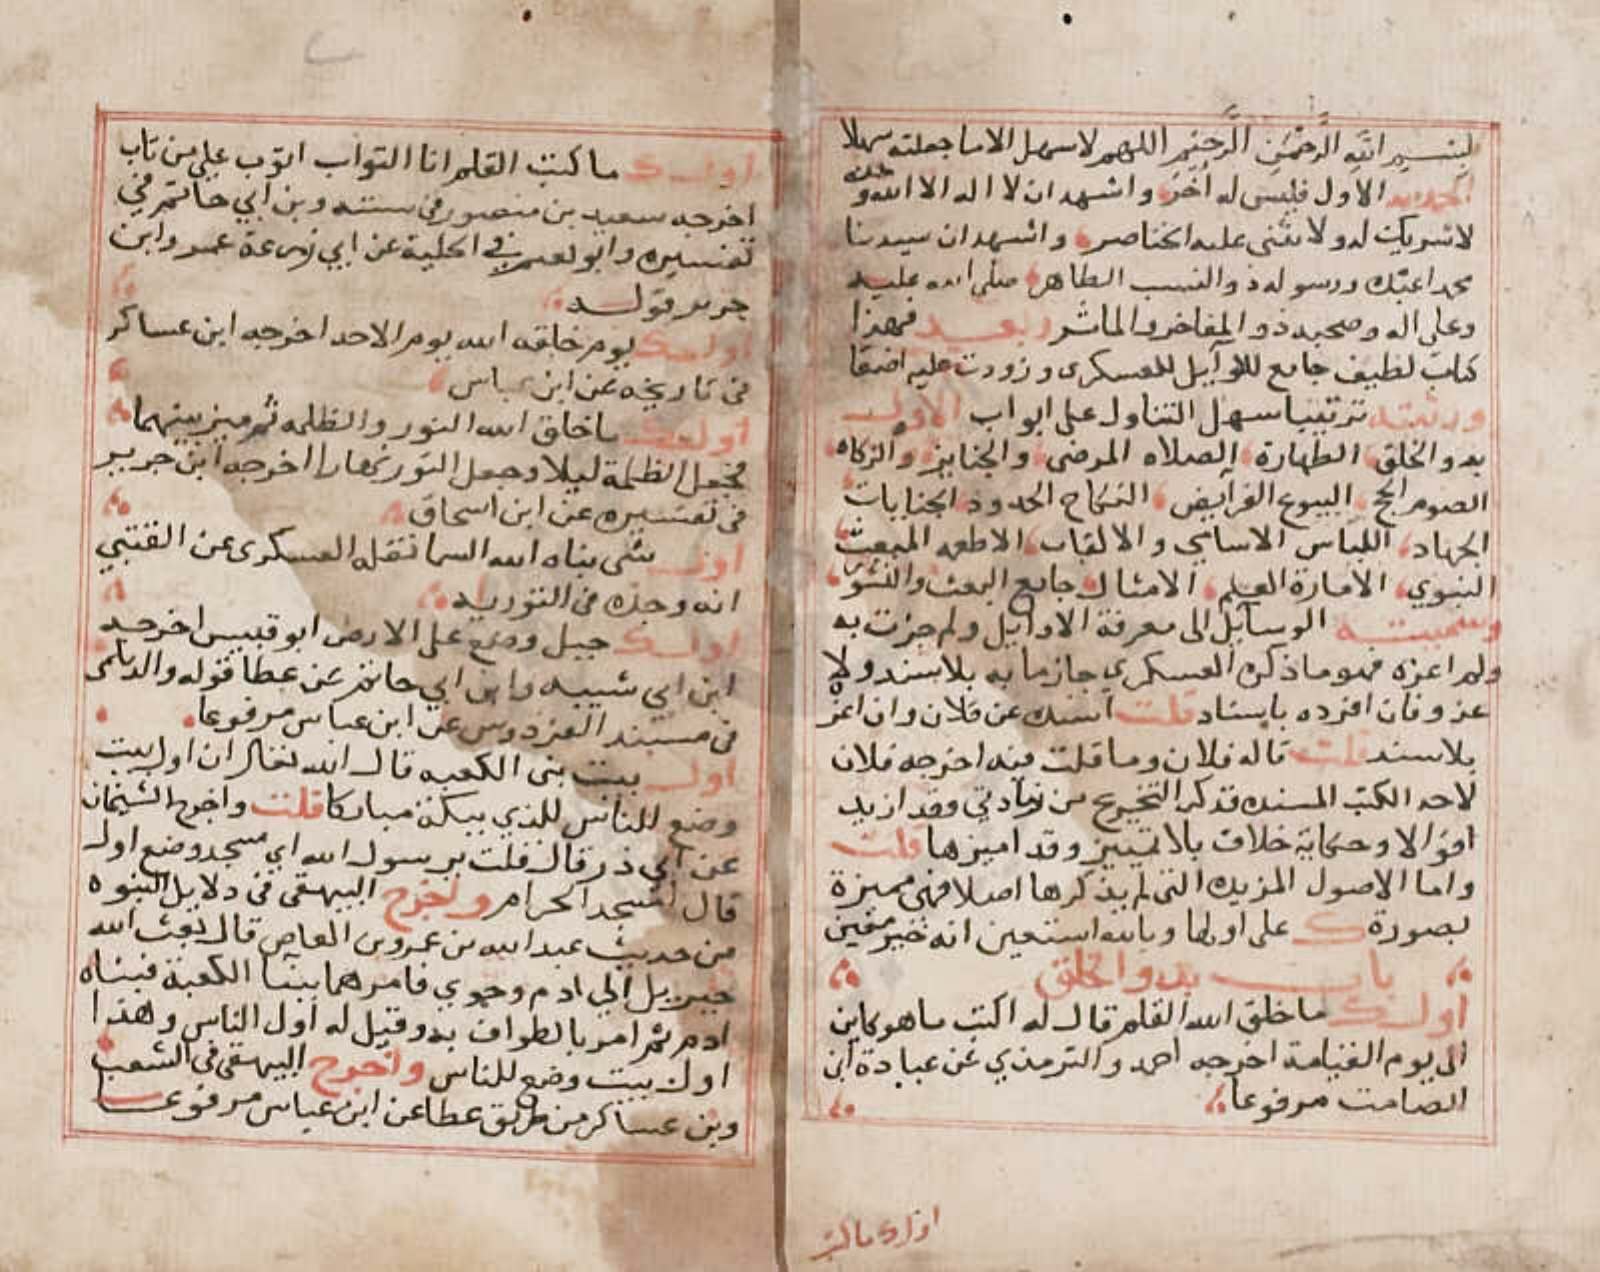 بسم الله الرحمن الرحيم اللهم لا سهل الا ما جعلته سهلا
الحمد لله الاول فليس له آخر واشهد ان لا اله الا الله وحده
لا شريك له ولا يثنى عليه الخناصر واشهد ان سيدنا
محمدا عبده ورسوله ذو النسب الطاهر صلى الله عليه
وعلى اله وصحبه ذوو المفاخر والماثر وبعد فهذا
كتاب لطيف جامع للاوآيل للعسكرى وزودت عليه اضعافا
ورتبته ترتيبا سهل التناول على ابواب الاول
بدو الخلق الطهارة الصلاه المرضى والجنايز والزكاه
الصوم الحج البيوع الفرآيض النكاح الحدود الجنايات
الجهاد اللباس الاسامي والالقاب الاطعمه المبعث
النبوي الامارة العلم الامثال جامع البعث والنشور
وسميته الوسآيل الى معرفة الاوايل ولم جزت به
ولم اعزه فهو ما ذكره العسكري جازما به بلا سند ولا
عزو فان افرده باسناد قلت اسنده عن فلان وان اعز
بلا سند قلت قاله فلان وما قلت فيه اخرجه فلان
لاحد الكتب المسنده فذكر التخريج من زيادتي وقد ازيد
اقوالا وحكاية خلاف بلا تمييز وقد اميزها قلت
واما الاصول المزيده التى لم يذكرها اصلا فهى مميزة
بصورة ك على اولها وبالله استعين انه خير معين
باب بدو الخلق
اول ك ما خلق الله القلم قال له اكتب ما هو كاين
الى يوم القيامة اخرجه احمد والترمذي عن عبادة ابن
الصامت مرفوعا
اول ك ما كتب
اول ك ما كتب القلم انا التواب اتوب على من تاب
اخرجه سعيد بن منصور فى سننه وبن ابي حاتم في
تفسيره وابو نعيم في الحلية عن ابي زرعة عمر وابن
جرير قوله
اول ك يوم خلقه الله يوم الاحد اخرجه ابن عساكر
فى تاريخه عن ابن عباس
اول ك ما خلق الله النور والظلمه ثم ميز بينهما
فجعل الظلمة ليلا وجعل النور نهارا اخرجه ابن جرير
فى تفسيره عن ابن اسحاق
اول شى بناه الله السما نقله العسكرى عن القتبي
انه وجده فى التوريه
اول ك جبل وضع على الارض ابو قبيس اخرجه
ابن ابى شيبه وابن ابي حاتم عن عطا قوله والديلمى
فى مسند الفردوس عن ابن عباس مرفوعا
اول بيت بنى الكعبه قال الله تعالى ان اول بيت
وضع للناس للذي ببكة مباركا قلت واخرج الشيخان
عن ابي ذر قال قلت يرسول الله اي مسجد وضع اول
قال المسجد الحرام واخرج البيهقى فى دلايل النبوه
من حديث عبد الله بن عمرو بن العاص قال بعث الله
جبريل الي ادم وحوي فامرهما ببنآ الكعبة فبناه
ادم ثم امر بالطواف به وقيل له اول الناس وهذا
اول بيت وضع للناس واخرج البيهقى فى الشعب
وبن عساكر من طريق عطا عن ابن عباس مرفوعا